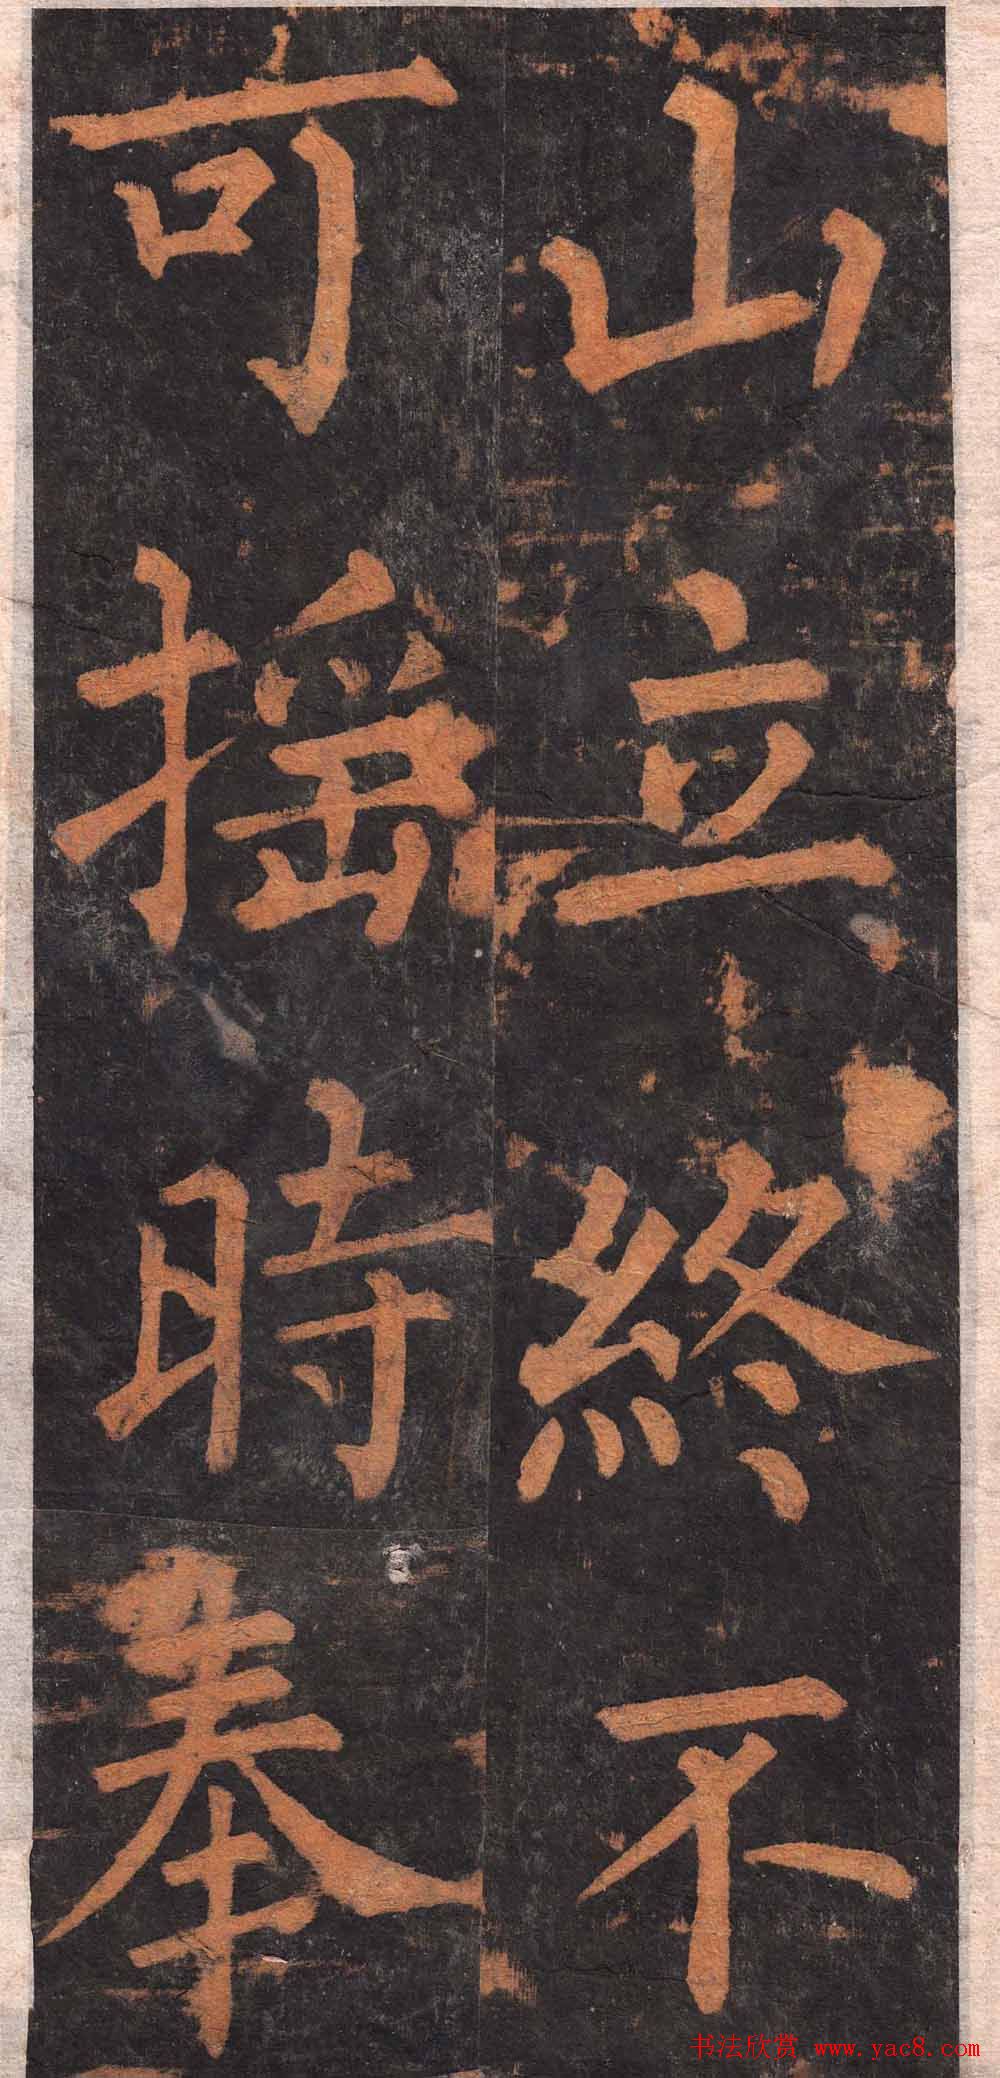 山立終不
可搖時奉
书法欣赏 www.yac8.com